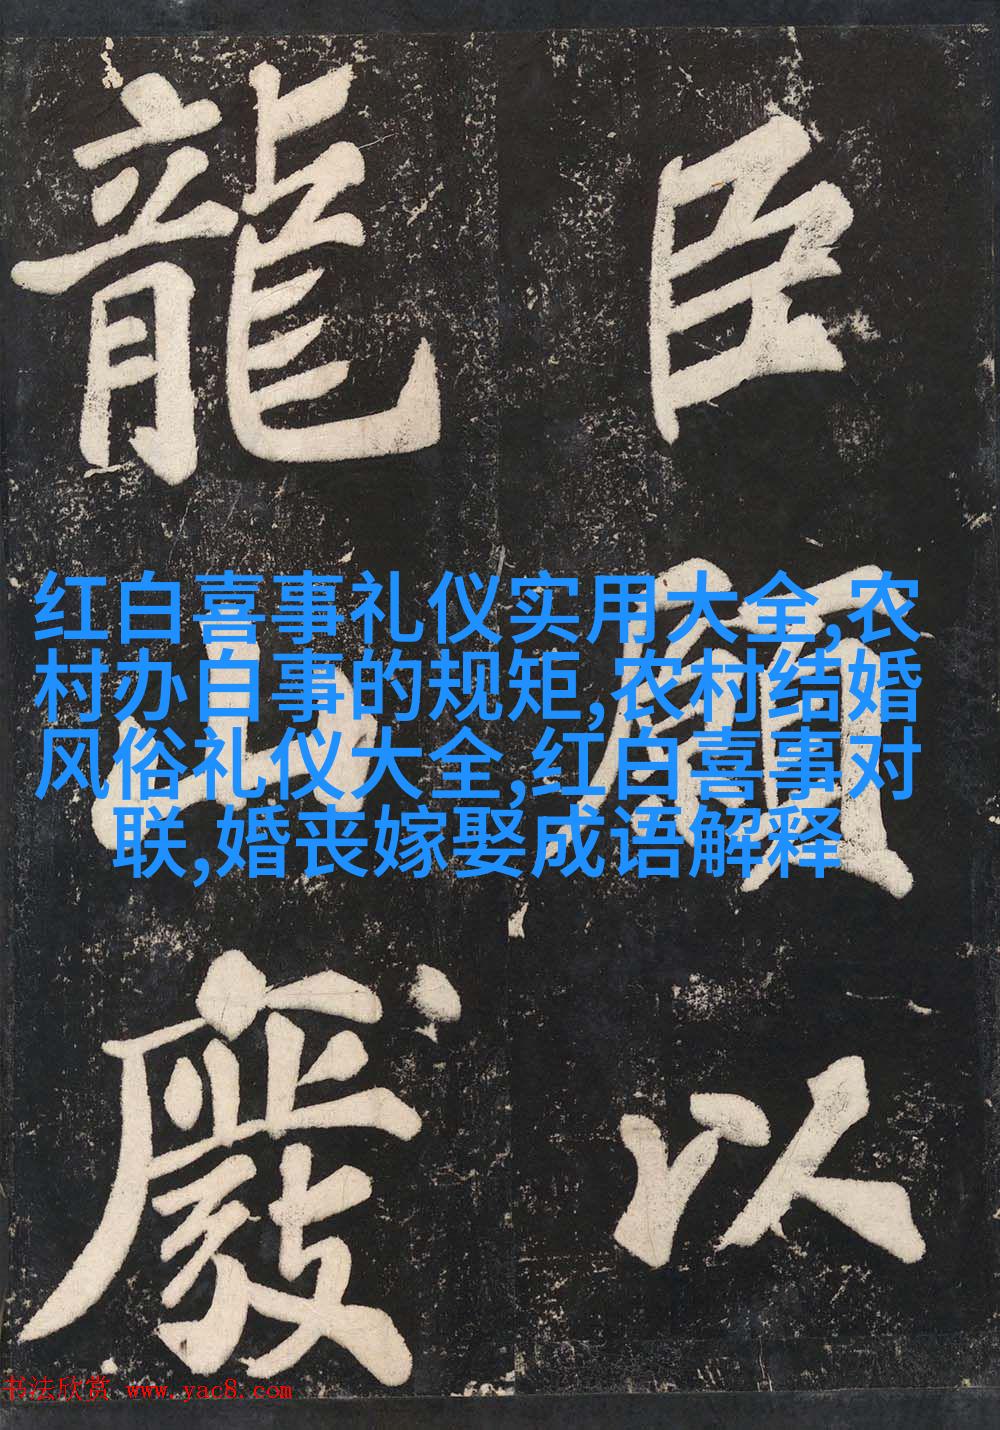 臣願以
龍山
红白喜事礼仪实用大全,农
村办白事的规矩,农村结婚
风俗礼仪大全,红白喜事对
联,婚丧嫁娶成语解释
书法欣赏 www.yac8.com